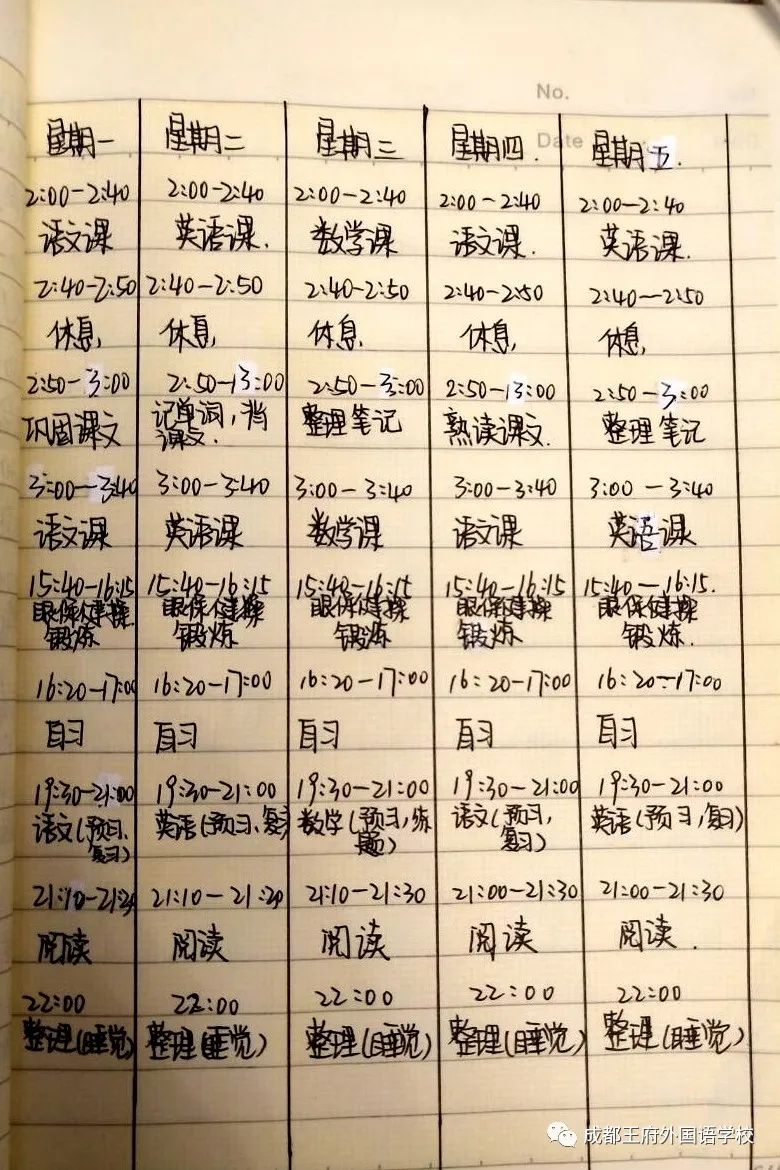 No.
Date
星期一 星期二 星期三 星期四. 星期五.
2:00-2:40 2:00-2:40 2:00-2:40 2:00-2:40 2:00-2:40
语文课 英语课. 数学课 语文课. 英语课.
2:40-2:50 2:40-2:50 2:40-2:50 2:40-2:50 2:40-2:50
休息, 休息, 休息, 休息, 休息,
2:50-3:00 2:50-13:00 2:50-3:00 2:50-13:00 2:50-3:00
巩固课文 记单词,背 整理笔记 熟读课文. 整理笔记
课文.
3:00-3:40 3:00-3:40 3:00-3:40 3:00-3:40 3:00-3:40
语文课 英语课 数学课 语文课 英语课
15:40-16:15 15:40-16:15 15:40-16:15 15:40-16:15 15:40-16:15.
眼保健操 眼保健操 眼保健操 眼保健操 眼保健操
锻炼 锻炼 锻炼 锻炼 锻炼.
16:20-17:00 16:20-17:00 16:20-17:00 16:20-17:00 16:20-17:00
自习 自习 自习 自习 自习
19:30-21:00 19:30-21:00 19:30-21:00 19:30-21:00 19:30-21:00
语文(预习、 英语(预习、复习 数学(预习,练 语文(预习, 英语(预习,复习)
复习) 题) 复习)
21:10-21:30 21:10-21:30 21:10-21:30 21:00-21:30 21:00-21:30
阅读 阅读 阅读 阅读 阅读.
22:00 22:00 22:00 22:00 22:00
整理(睡觉) 整理(睡觉) 整理(睡觉) 整理(睡觉) 整理(睡觉)
成都王府外国语学校